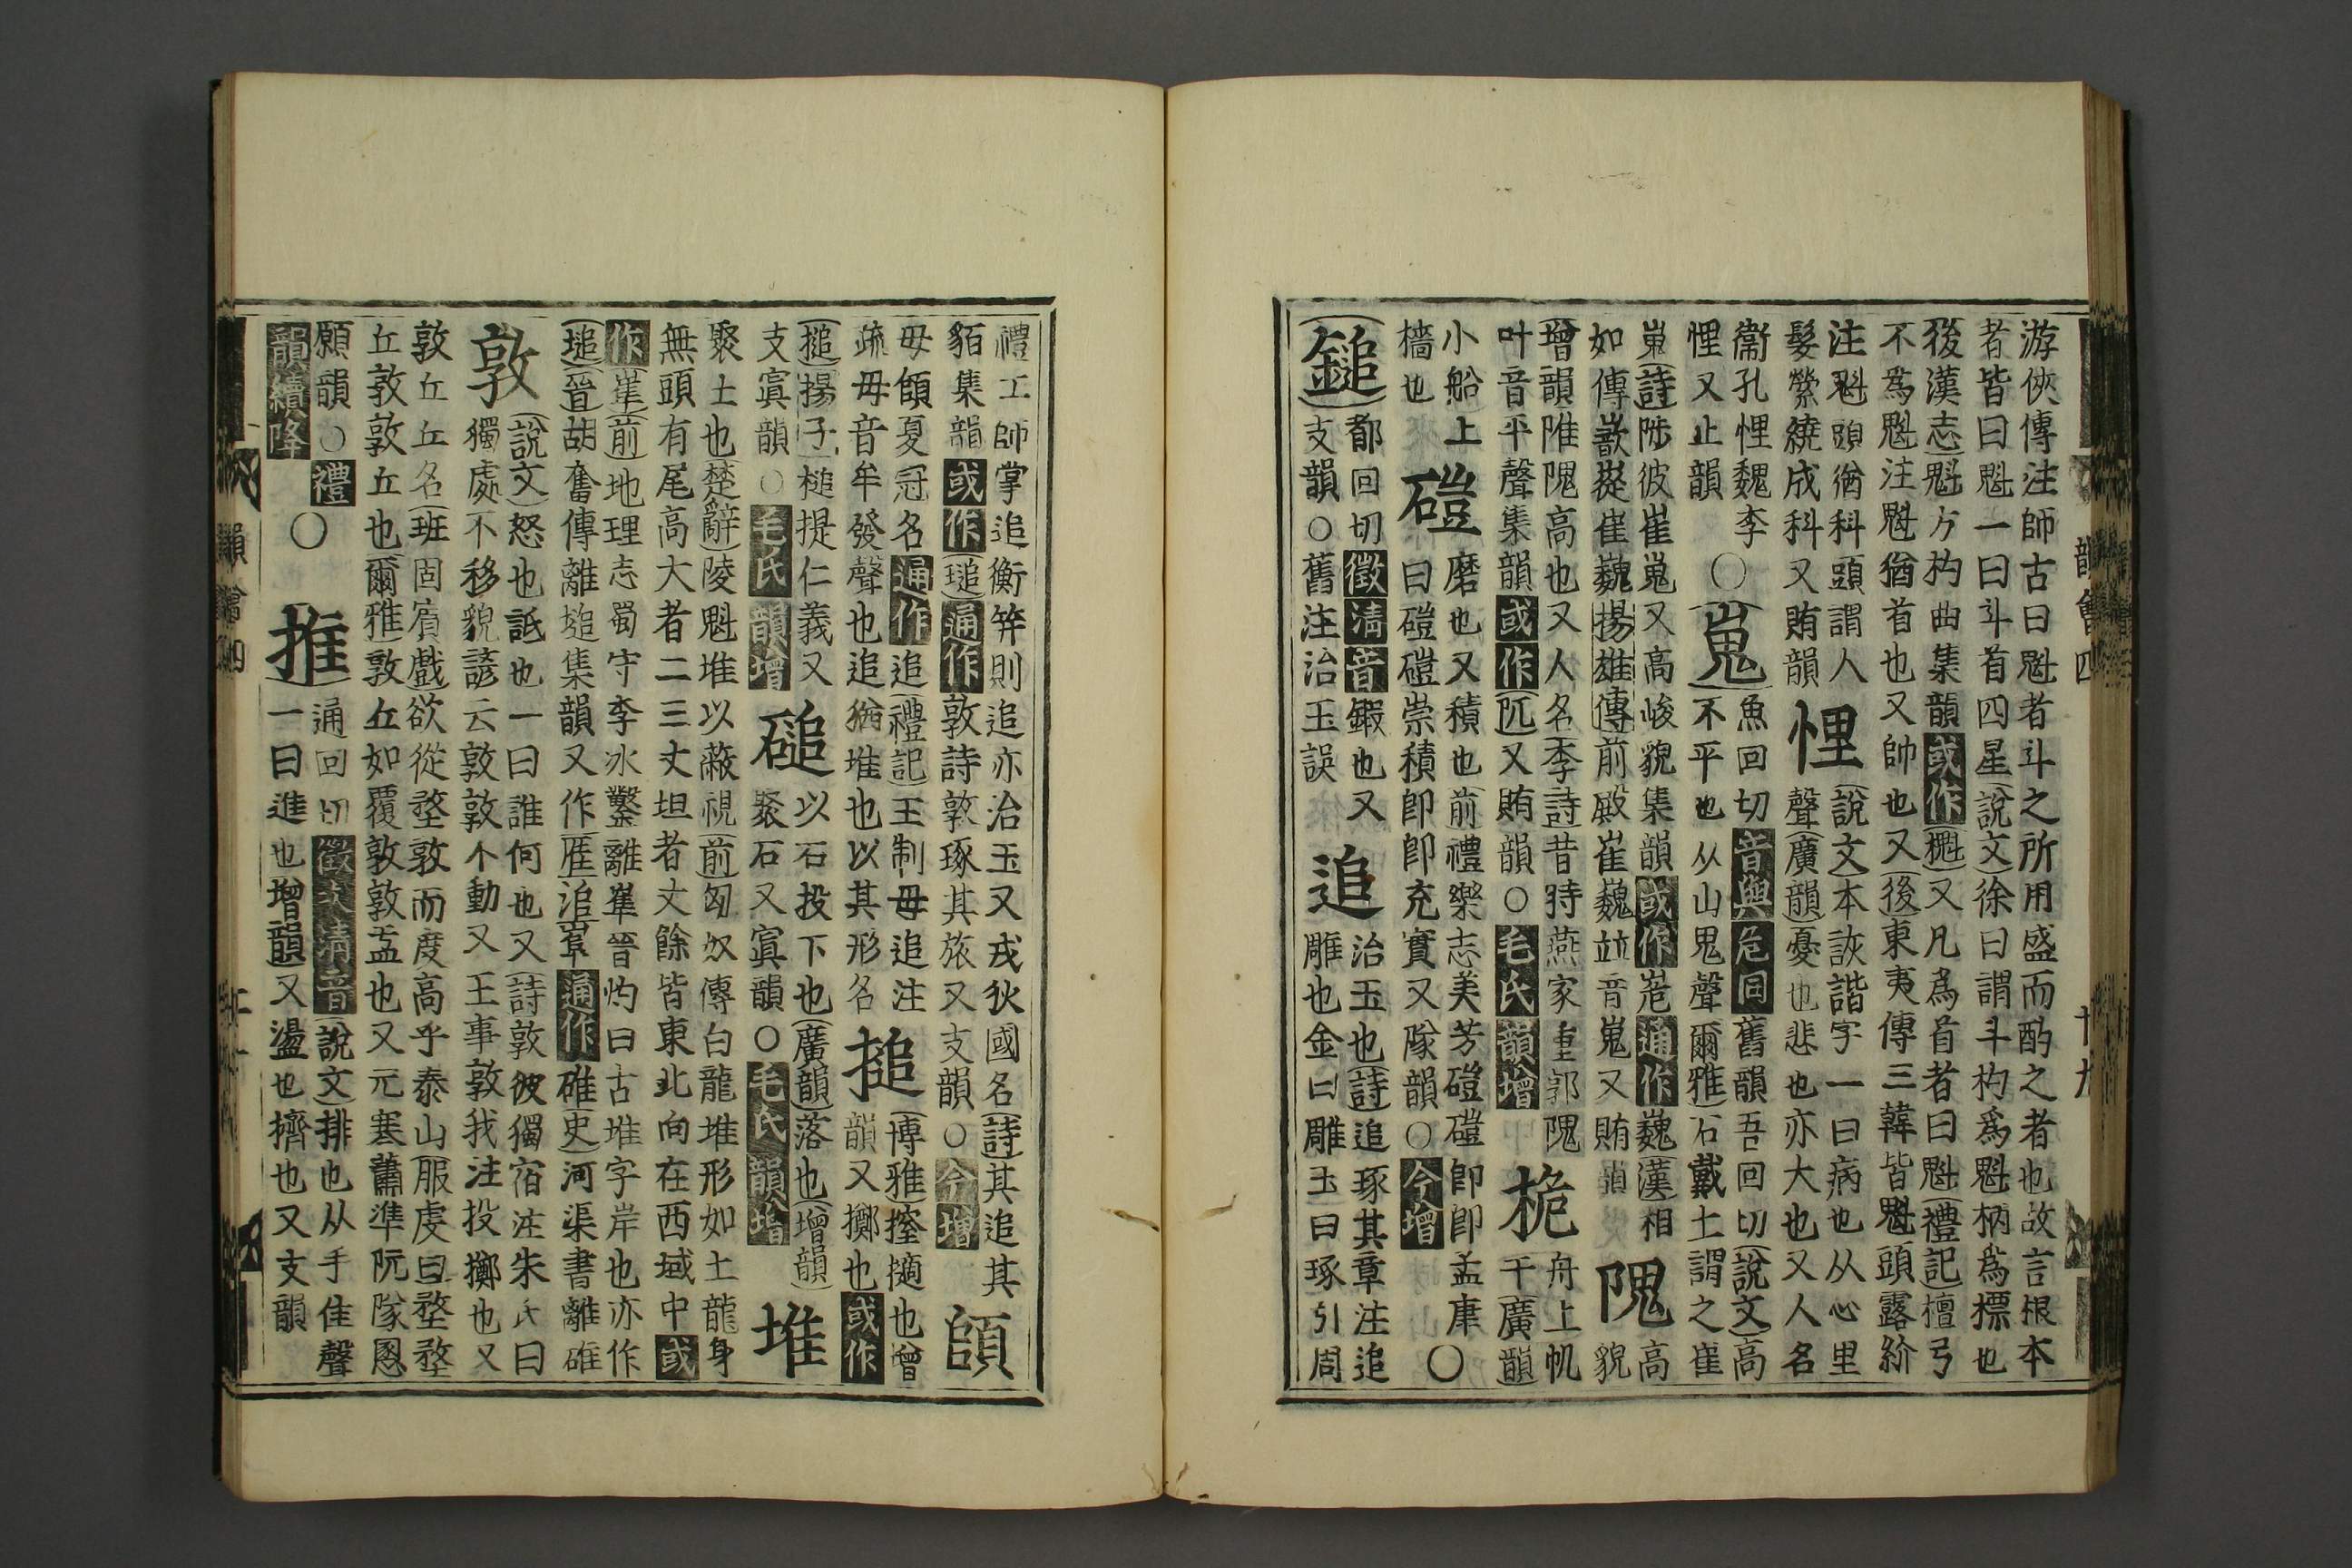 游俠傳注師古曰魁者斗之所用盛而酌之者也故言根本
者皆曰魁一曰斗首四星說文徐曰謂斗杓爲魁柄爲標也
後漢志魁方杓曲集韻或作櫆又凡爲首者曰魁禮記檀弓
不爲魁注魁猶首也又帥也又後東夷傳三韓皆魁頭露紒
注魁頭猶科頭謂人
髮縈繞成科又賄韻
悝
說文本詼諧字一曰病也从心里
聲廣韻憂也悲也亦大也又人名
衞孔悝魏李
悝又止韻
○
嵬
魚回切音與危同舊韻吾回切說文高
不平也从山鬼聲爾雅石戴土謂之崔
嵬詩陟彼崔嵬又高峻貌集韻或作峞通作巍漢相
如傳嶔㠑崔巍揚雄傳前殿崔巍竝音嵬又賄韻
隗
高
貌
增韻陮隗高也又人名李詩昔時燕家重郭隗
叶音平聲集韻或作㕒又賄韻○毛氏韻增
桅
舟上帆
干廣韻
小船上
檣也
磑
磨也又積也前禮樂志美芳磑磑卽卽孟康
曰磑磑崇積卽卽充實又隊韻○今增
○
鎚
都回切徵淸音鍜也又
支韻○舊注治玉誤
追
治玉也詩追琢其章注追
雕也金曰雕玉曰琢引周
禮工師掌追衡笄則追亦治玉又戎狄國名詩其追其
貊集韻或作䃍通作敦詩敦琢其旅又支韻○今增
䫝
毋䫝夏冠名通作追禮記王制毋追注
疏毋音牟發聲也追猶堆也以其形名
搥
博雅㩇擿也增
韻又擲也或作
搥揚子槌提仁義又
支寘韻○毛氏韻增
磓
以石投下也廣韻落也增韻
聚石又寘韻○毛氏韻增
堆
聚土也楚辭陵魁堆以蔽視前匈奴傳白龍堆形如土龍身
無頭有尾高大者二三丈坦者丈餘皆東北向在西域中或
作嵟前地理志蜀守李冰鑿離嵟晉灼曰古堆字岸也亦作
塠晉胡奮傳離塠集韻又作𠂤通作碓史河渠書離碓
敦
說文怒也詆也一曰誰何也又詩敦彼獨宿注朱氏曰
獨處不移貌諺云敦敦不動又王事敦我注投擲也又
敦丘丘名班固賓戲欲從堥敦而度高乎泰山服虔曰堥堥
丘敦敦丘也爾雅敦丘如覆敦敦盂也又元寒蕭準阮隊慁
願韻○禮
韻續降
○
推
通回切徵次淸音說文排也从手隹聲
一曰進也增韻又盪也擠也又支韻